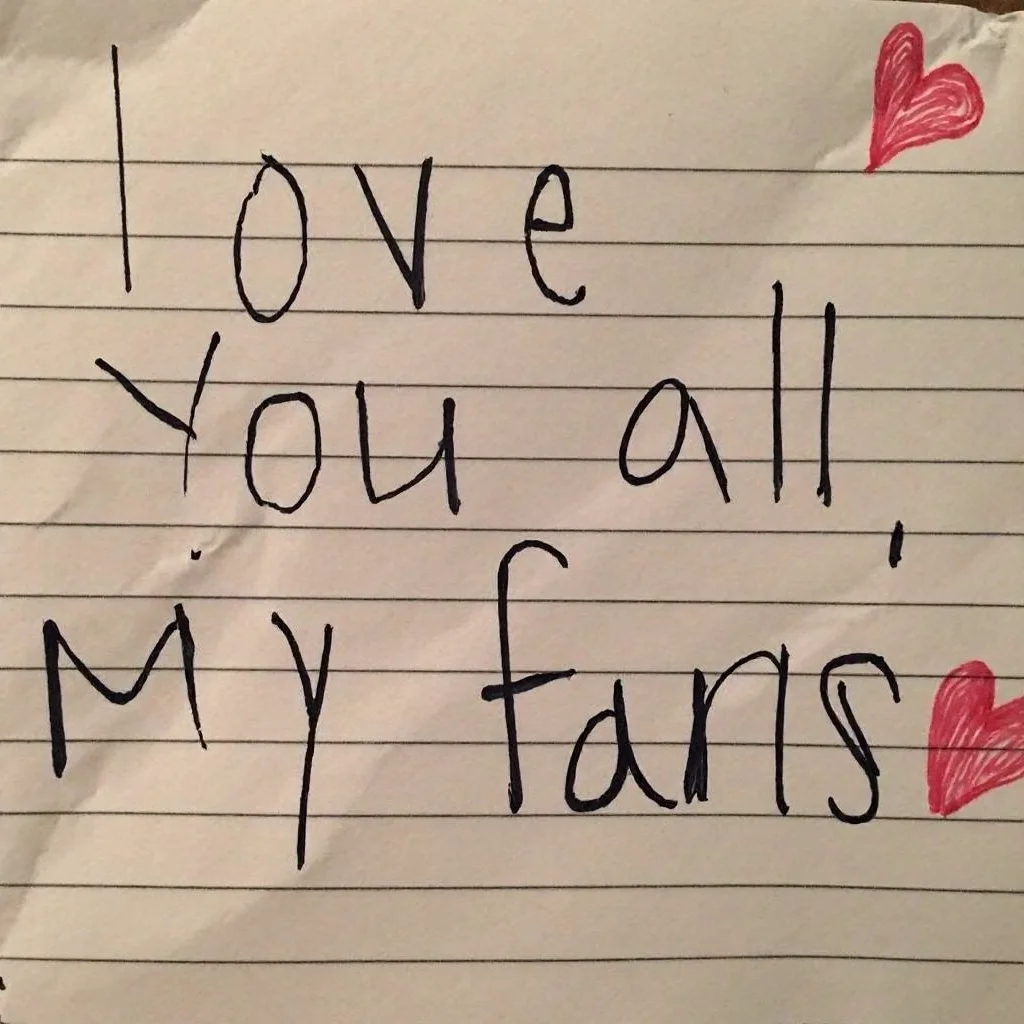 love
You all
My fans